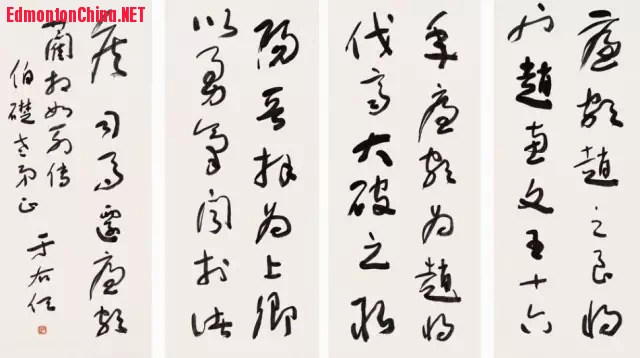 EdmontonChina.NET
廉頗趙之良將
也趙惠文王十六
年廉頗為趙將
伐齊大破之取
陽晉拜為上卿
以勇氣聞於諸
侯 司馬遷廉頗
藺相如列傳
伯礎老弟正
于右任